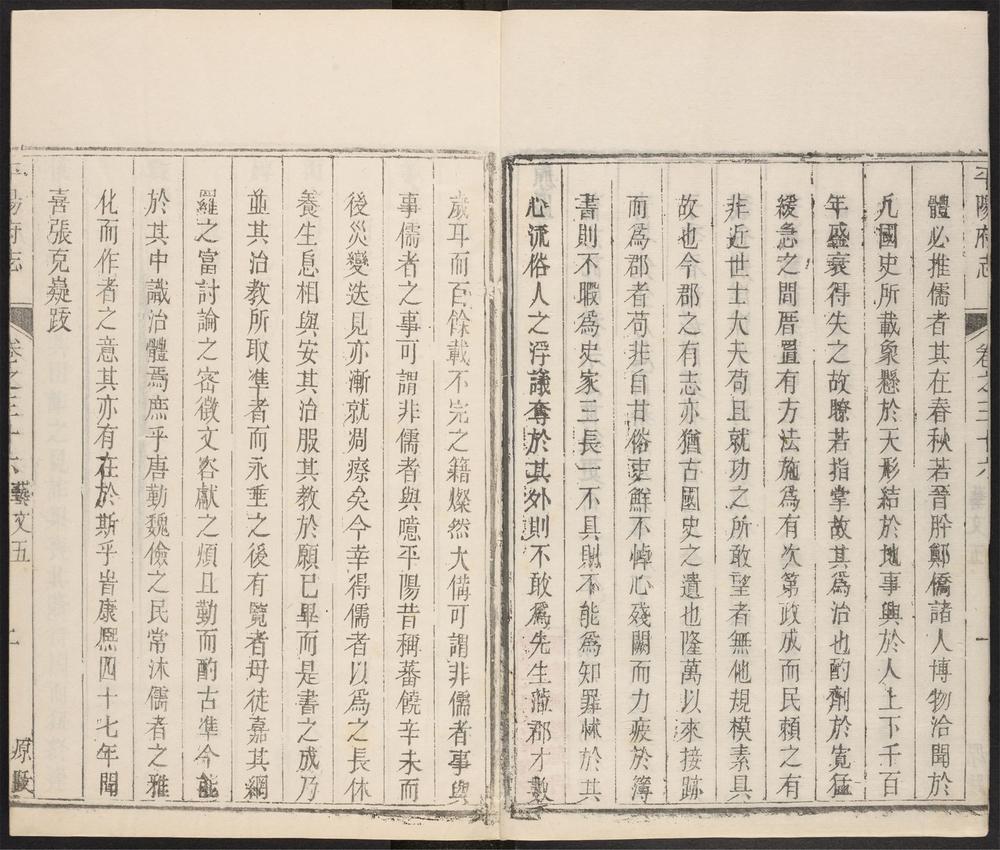 平陽府志
卷之三十六
體必推儒者其在春秋若晉肸鄭僑諸人博物洽聞於
凡國史所載象懸於天形結於地事興於人上下千百
年盛衰得失之故瞭若指掌故其為治也酌劑於寬猛
緩急之間厝置有方法施為有次第政成而民賴之有
非近世士大夫苟且就功之所敢望者無他規模素具
故也今郡之有志亦猶古國史之遺也隆萬以來接跡
而為郡者苟非自甘俗吏鮮不悼心殘闕而力疲於簿
書則不暇為史家三長一不具則不能為知罪怵於其
心流俗人之浮議奪於其外則不敢為先生蒞郡才數
歲耳而百餘載不完之籍燦然大備可謂非儒者事與
事儒者之事可謂非儒者與噫平陽昔稱蕃饒辛未而
後災變迭見亦漸就凋瘵矣今幸得儒者以為之長休
養生息相與安其治服其教於願已畢而是書之成乃
並其治教所取準者而永垂之後有覽者毋徒嘉其網
羅之富討論之密徵文咨獻之煩且勤而酌古準今能
於其中識治體焉庶乎唐勤魏儉之民常沐儒者之雅
化而作者之意其亦有在於斯乎旹康熙四十七年聞
喜張克嶷跋
平陽府志
卷之三十六
藝文五
原跋